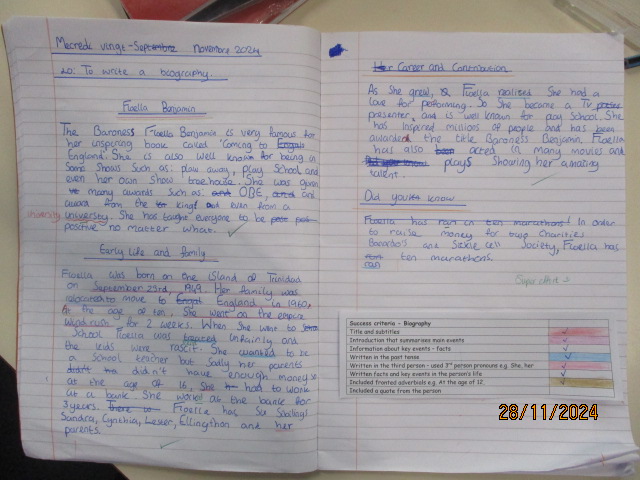 Mecredi vingt - Septembre Novembre 2024
LO: To write a biography.
Floella Benjamin
The Baroness Floella Benjamin is very famous for
her inspiring book called 'Coming to
England. She is also well known for being in
Some Shows such as: play away, play School and
even her own Show treehouse. She was given
many awards Such as OBE, and
award from the king and even from a
university university. She has taught everyone to be
positive no matter what.
Early Life and family
Floella was born on the island of Trinidad
on September 23rd, 1949. Her family was
to move to England in 1960,
At the age of ten. She went on the empire
windrush for 2 weeks. When She went to
School Floella was treated unfairly and
the kids were rascit. She wanted to be
a School teacher but Sadly her parents
didn't have enough money so
at the age of 16, She had to work
at a bank. She worked at the bank for
3 years. Floella has Six
Sandra, Cynthia, Lester, Ellington and her
parents.
Her Career and Contribution
As She grew, Floella realised She had a
love for performing. So She became a TV
presenter, and is well known for play School. She
has inspired millions of people and has been
awarded the title Baroness Benjamin, Floella
has also acted in many movies and
plays Showing her amazing
talent.
Did you know
Floella has ran in ten marathons! In order
to raise money for two Charities
and Sickle cell Society, Floella has
ran ten marathons.
Super effort
Success criteria – Biography
Title and subtitles
Introduction that summarises main events
Information about key events – facts
Written in the past tense
Written in the third person – used 3rd person pronouns e.g. She, her
Written facts and key events in the person's life
Included fronted adverbials e.g. At the age of 12,
Included a quote from the person
28/11/2024